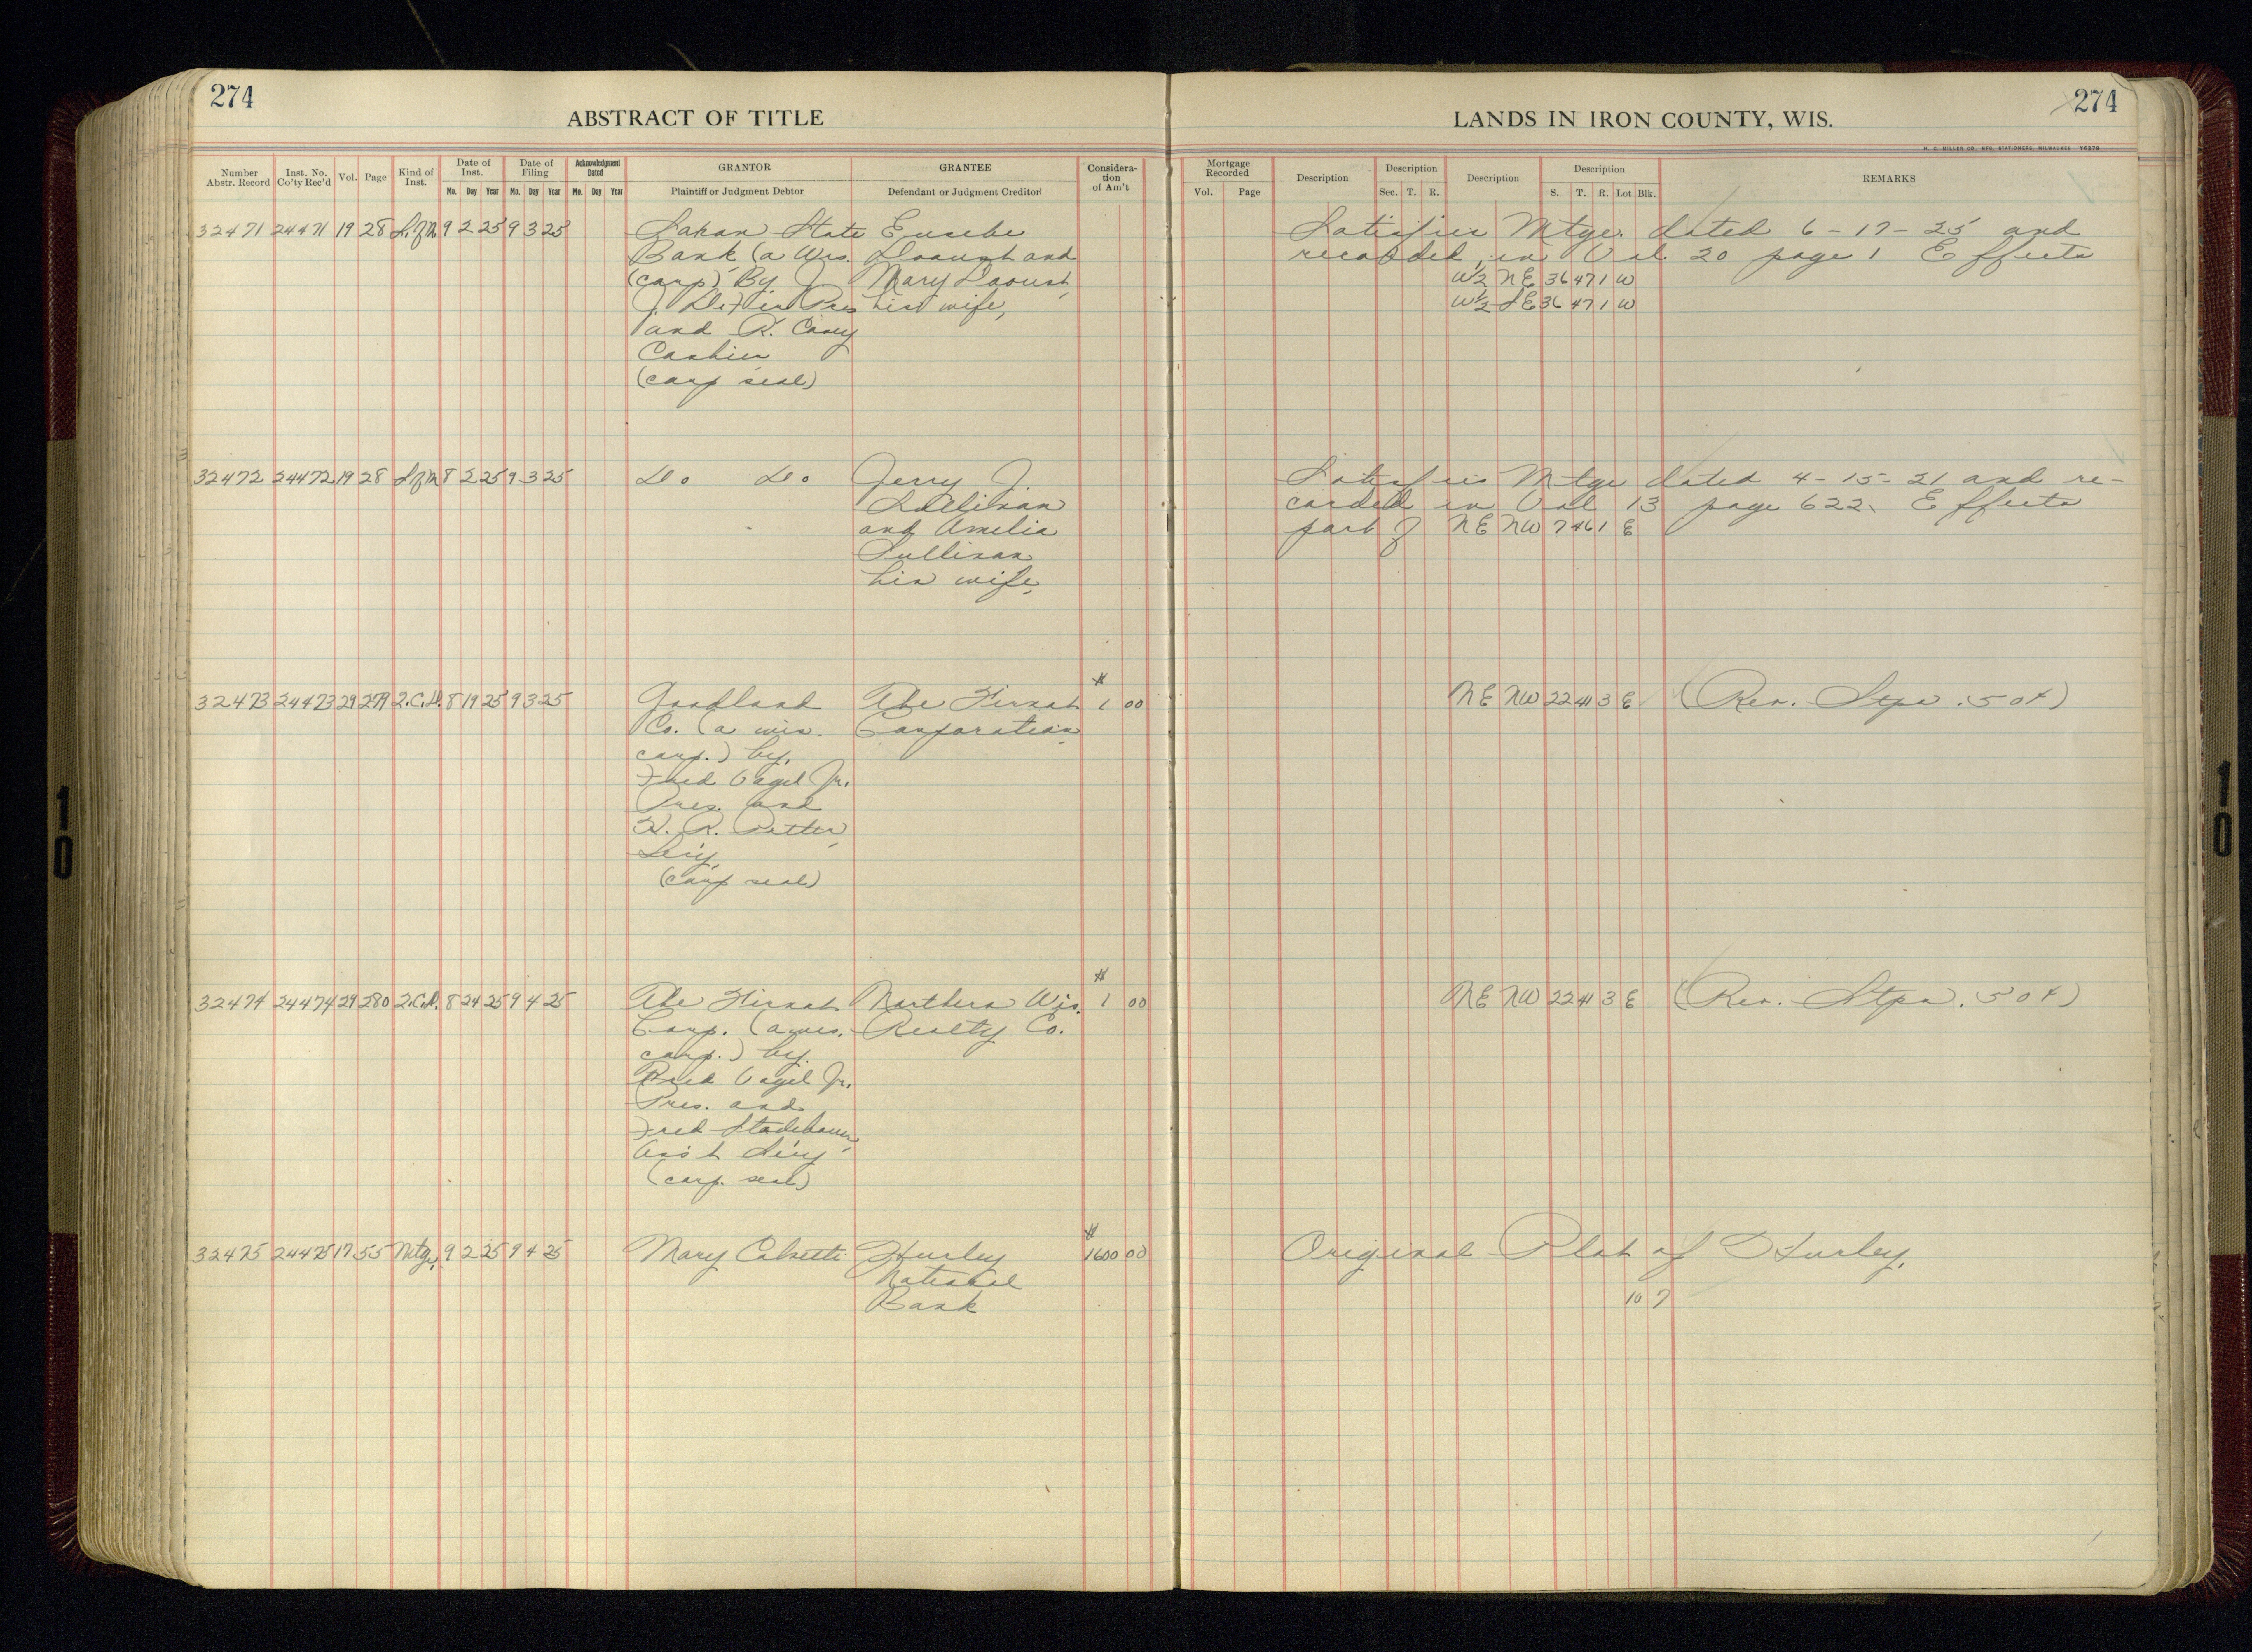 274
ABSTRACT OF TITLE
Number Abstr. Record
Inst. No. Co'ty Rec'd
Vol.
Page
Kind of Inst.
Date of Inst.
Mo. Day Year
Date of Filing
Mo. Day Year
Acknowledgment Dated
Mo. Day Year
GRANTOR
Plaintiff or Judgment Debtor
GRANTEE
Defendant or Judgment Creditor
Considera-
tion
of Am't
32471 24471 19 28 S. of M 9 2 25 9 3 25
Saxon State
Bank (a Wis.
(corp) By J.
and R. Coney
Cashier
(corp seal)
Eusebe
Daoust and
Mary Daoust,
his wife,
32472 24472 19 28 S of M 8 2 25 9 3 25
Do Do
Jerry J.
Sullivan
and Amelia
Sullivan
his wife,
32473 24473 29 279 2.C.D. 8 19 25 9 3 25
Goodland
Co. (a wis.
corp.) by,
Fred Vogel Jr.
Pres. and
Sec'y,
(corp seal)
The Firnat
Corporation
$
1 00
32474 24474 29 280 2.C.D. 8 24 25 9 4 25
The Firnat
Corp. (a wis.
corp.) by.
Fred Vogel Jr.
Pres. and
Fred
Ass't Sec'y
(corp. seal)
Northern Wis.
Realty Co.
$
1 00
32475 24475 17 55 Mtge, 9 2 25 9 4 25
Mary
Hurley
National
Bank
$
1600 00
LANDS IN IRON COUNTY, WIS.
274
H. C. MILLER CO., MFG. STATIONERS, MILWAUKEE
Mortgage Recorded
Vol. Page
Description
Description
Sec. T. R.
Description
Description
S. T. R. Lot Blk.
REMARKS
Satisfies Mtge. dated 6-17-25 and
recorded, in Vol. 20 page 1 Effects
W½ NE 36 47 1 W
W½ SE 36 47 1 W
Satisfies Mtge dated 4-15-21 and re-
corded in Vol 13 page 622. Effects
part of NE NW 7 46 1 E
NE NW 22 41 3 E (Rev. Stps. .50¢)
NE NW 22 41 3 E (Rev. Stps. .50¢)
Original Plat of Hurley,
10 7
10
10